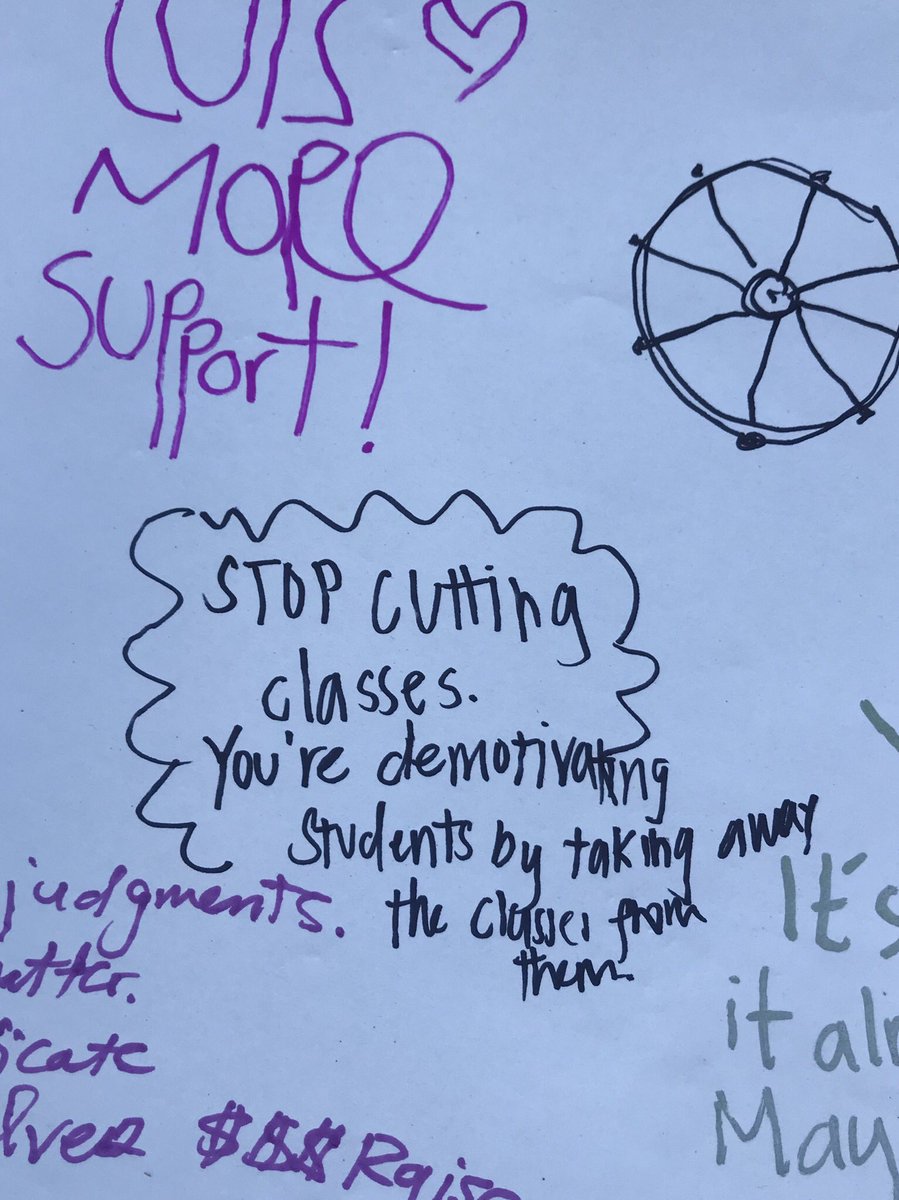 CUTS
MORE
SUPPORT!
STOP cutting
classes.
You're demotivating
students by taking away
the classes from
them.
judgments.
atter.
ficate
$$$ Raise
It's
it alr
May